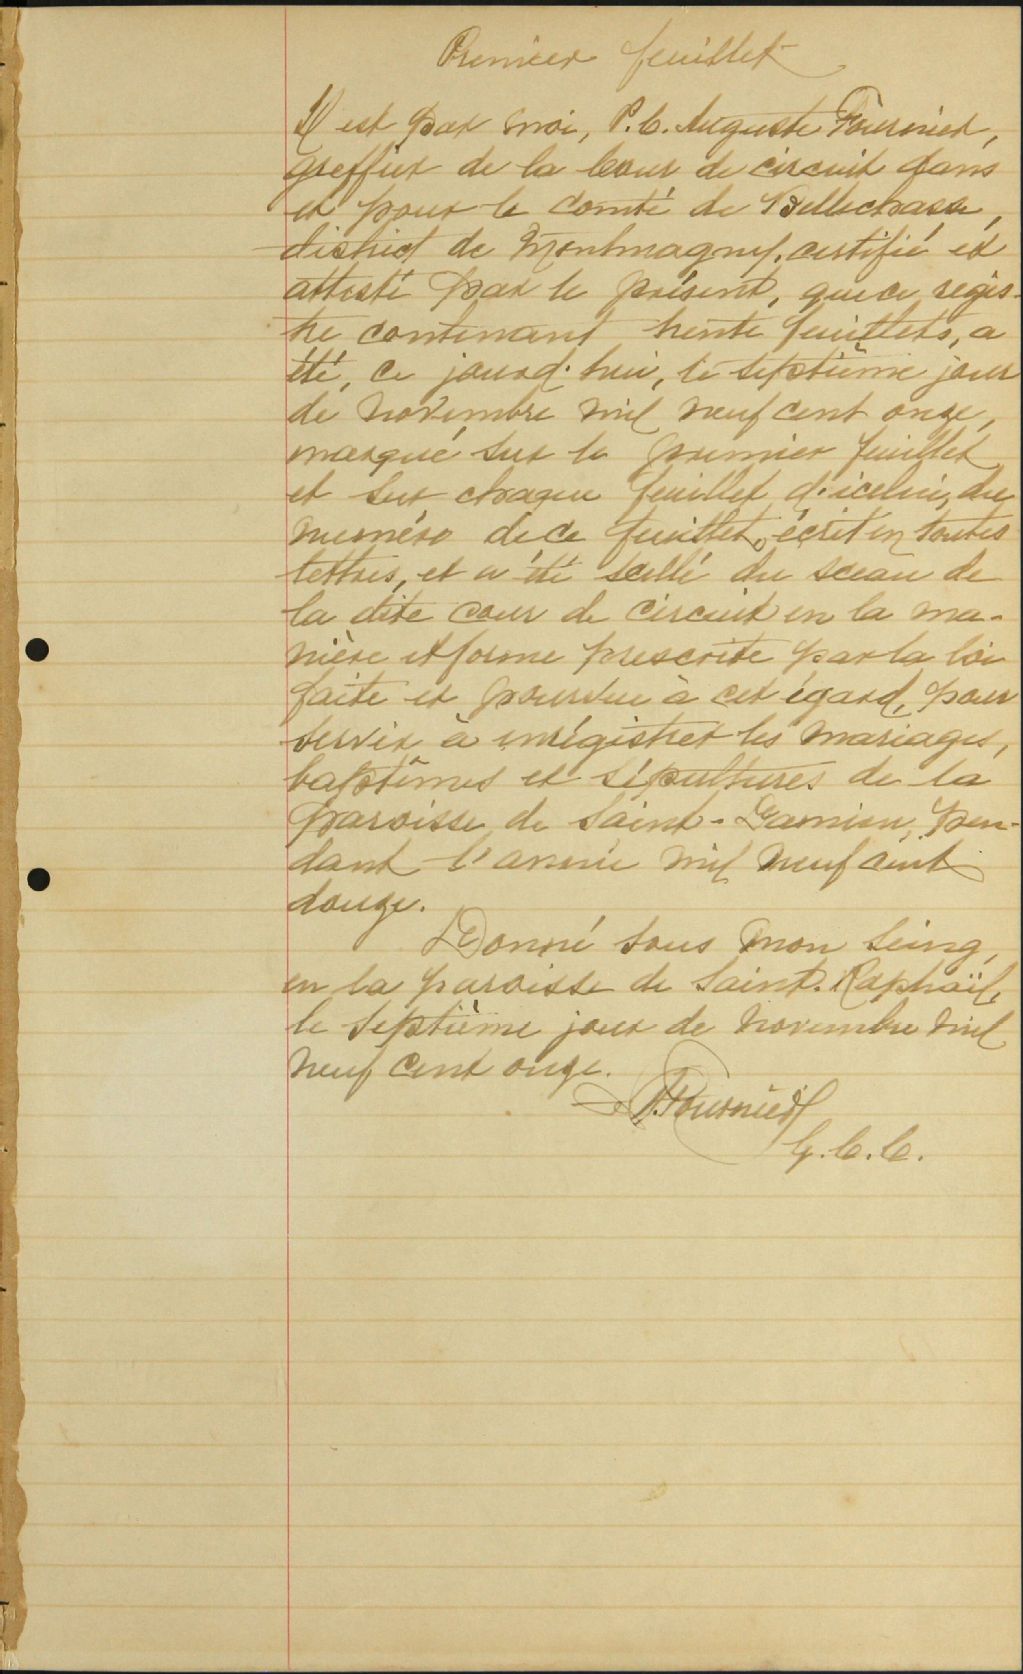 Premier feuillet
Il est par moi, P. C. Auguste Fournier,
greffier de la Cour de circuit dans
et pour le Comté de Bellechasse,
district de Montmagny, certifié et
attesté par le présent, que ce regis-
tre contenant trente feuillets, a
été, ce jourd'hui, le septième jour
de novembre mil neuf cent onze,
marqué sur le premier feuillet
et sur chaque feuillet d'icelui, du
numéro de ce feuillet, écrit en toutes
lettres, et a été scellé du sceau de
la dite cour de Circuit en la ma-
nière et forme prescrite par la loi
faite et pourvue à cet égard, pour
servir à enrégistrer les mariages,
baptêmes et sépultures de la
paroisse de Saint-Damien, pen-
dant l'année mil neuf cent
douze.
Donné sous mon seing,
en la paroisse de Saint-Raphaël,
le septième jour de novembre mil
neuf cent onze.
A. Fournier
G. C. C.